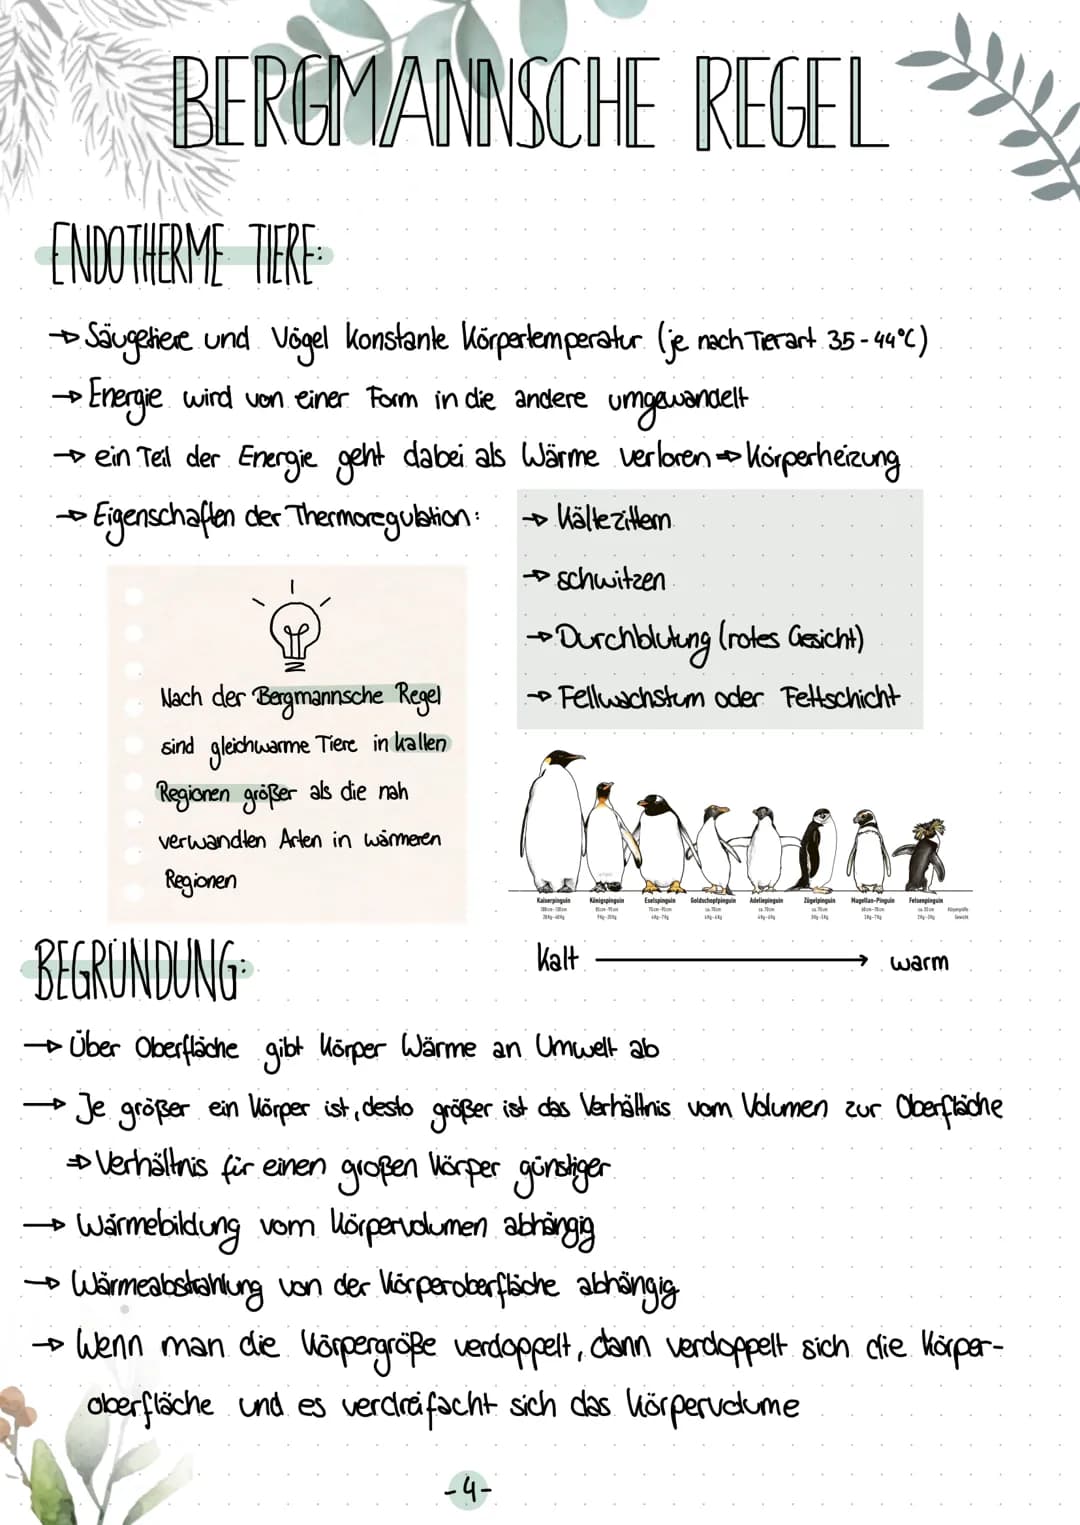 BERGMANNSCHE REGEL
ENDOTHERME TIERE:
→ Säugetiere und Vögel konstante Körpertemperatur (je nach Tierart 35-44°C)
→ Energie wird von einer Form in die andere umgewandelt
→ ein Teil der Energie geht dabei als Wärme verloren ⇒ Körperheizung
→ Eigenschaften der Thermoregulation:
→ Kältezittern
→ schwitzen
→ Durchblutung (rotes Gesicht)
→ Fellwachstum oder Fettschicht
Nach der Bergmannsche Regel
sind gleichwarme Tiere in kalten
Regionen größer als die nah
verwandten Arten in wärmeren
Regionen
Kaiserpinguin Königspinguin Eselspinguin Goldschopfpinguin Adeliepinguin Zügelpinguin Magellan-Pinguin Felsenpinguin
Körpergröße
Gewicht
Kalt → warm
BEGRÜNDUNG:
→ Über Oberfläche gibt Körper Wärme an Umwelt ab
→ Je größer ein Körper ist, desto größer ist das Verhältnis vom Volumen zur Oberfläche
⇒ Verhältnis für einen großen Körper günstiger
→ Wärmebildung vom Körpervolumen abhängig
→ Wärmeabstrahlung von der Körperoberfläche abhängig
→ Wenn man die Körpergröße verdoppelt, dann verdoppelt sich die Körper-
oberfläche und es verdreifacht sich das Körpervolume
-4-